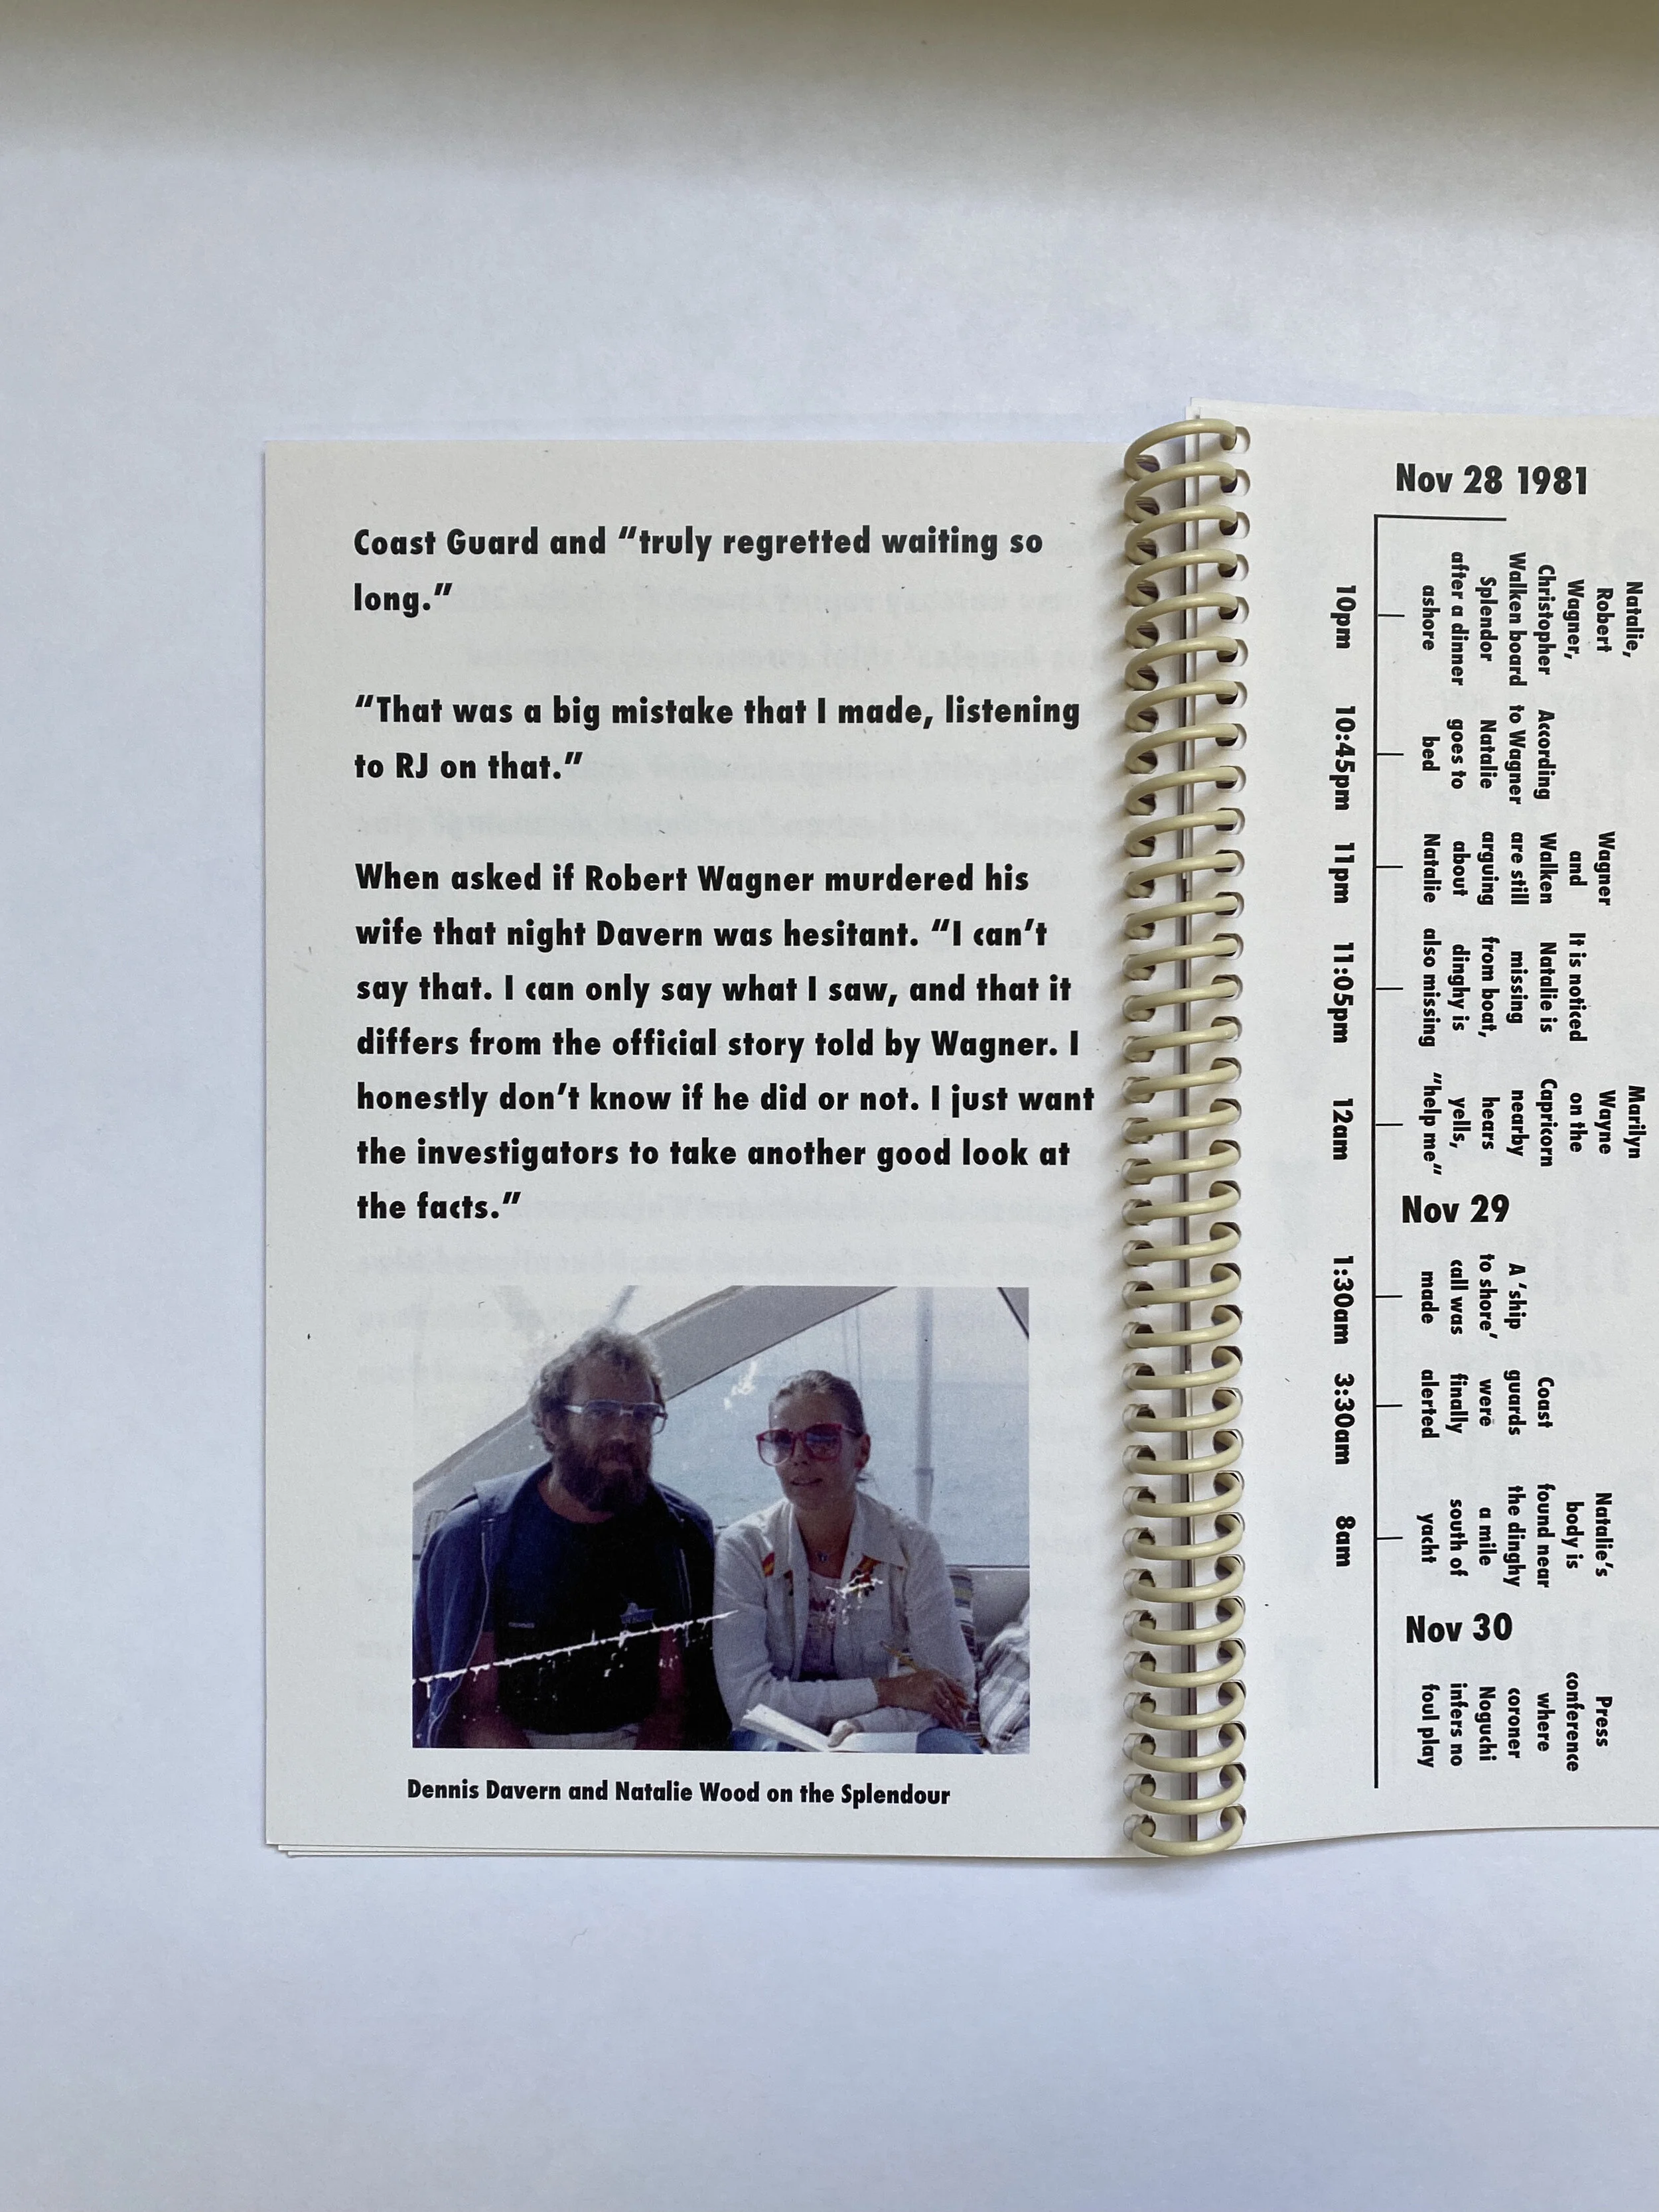 Coast Guard and “truly regretted waiting so
long.”
“That was a big mistake that I made, listening
to RJ on that.”
When asked if Robert Wagner murdered his
wife that night Davern was hesitant. “I can’t
say that. I can only say what I saw, and that it
differs from the official story told by Wagner. I
honestly don’t know if he did or not. I just want
the investigators to take another good look at
the facts.”
Dennis Davern and Natalie Wood on the Splendour
Nov 28 1981
Natalie,
Robert
Wagner,
Christopher
Walken board
Splendor
after a dinner
ashore
10pm
According
to Wagner
Natalie
goes to
bed
10:45pm
Wagner
and
Walken
are still
arguing
about
Natalie
11pm
It is noticed
Natalie is
missing
from boat,
dinghy is
also missing
11:05pm
Marilyn
Wayne
on the
Capricorn
nearby
hears
yells,
“help me”
12am
Nov 29
A ‘ship
to shore’
call was
made
1:30am
Coast
guards
were
finally
alerted
3:30am
Natalie’s
body is
found near
the dinghy
a mile
south of
yacht
8am
Nov 30
Press
conference
where
coroner
Noguchi
infers no
foul play